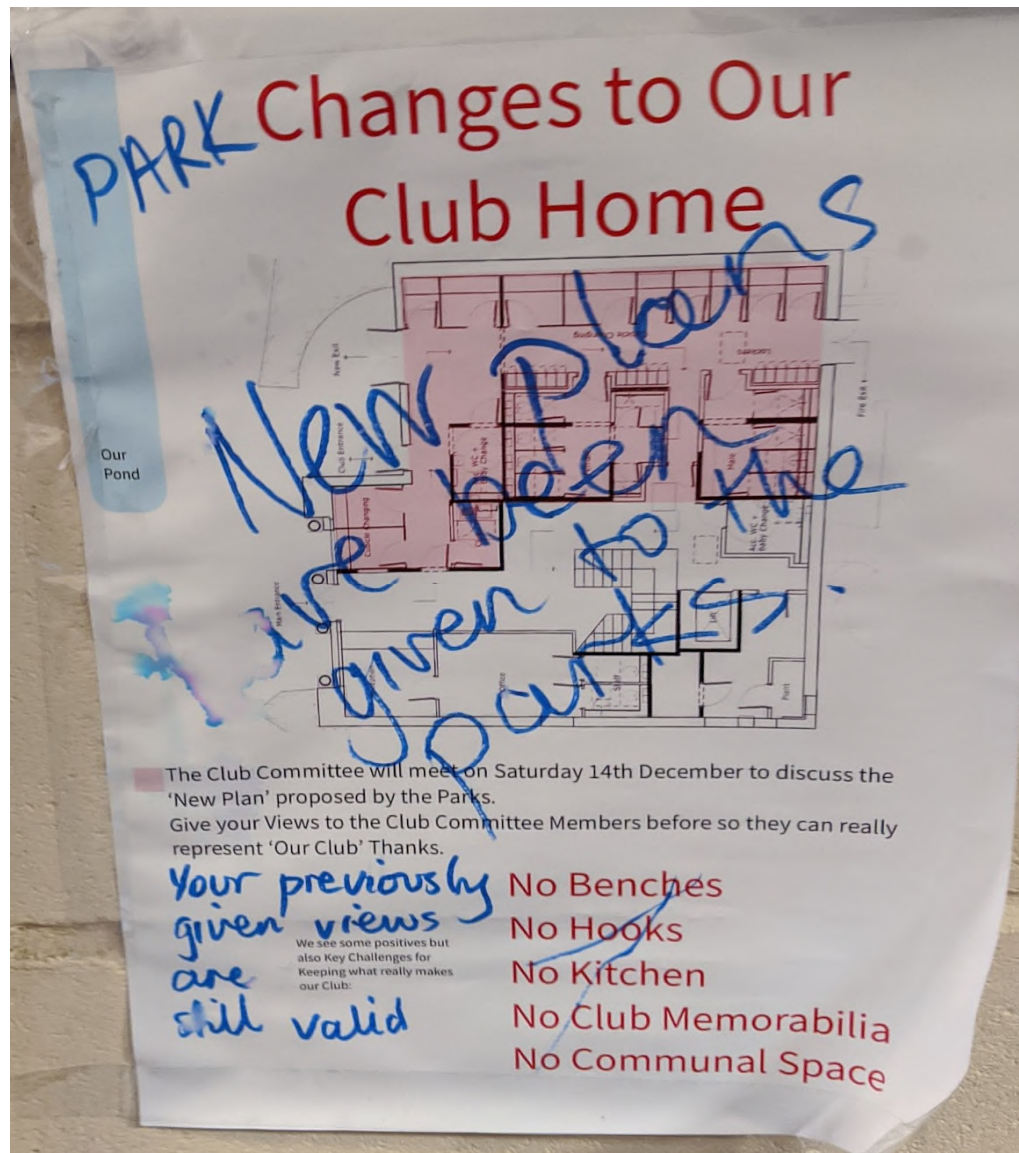 PARK
Changes to Our
Club Home
New Plans
been
given to the
parks.
Our
Pond
New Exit
Club Entrance
Main Entrance
Fire Exit
Lockers
Cubicle Changing
Acc. WC +
Baby Change
Male
Acc. WC +
Baby Change
Lift
Staff
Plant
The Club Committee will meet on Saturday 14th December to discuss the
‘New Plan’ proposed by the Parks.
Give your Views to the Club Committee Members before so they can really
represent ‘Our Club’ Thanks.
Your previously
given views
are
still valid
We see some positives but
also Key Challenges for
Keeping what really makes
our Club:
No Benches
No Hooks
No Kitchen
No Club Memorabilia
No Communal Space